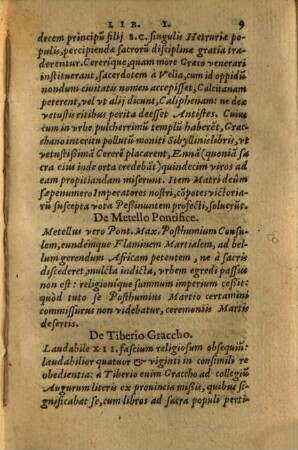 LIB. I. 9
decem principũ filij S.C. singulis Hetruriæ po-
pulis, percipiendæ sacrorũ disciplinæ gratia tra-
derentur. Cererique, quam more Græco venerari
instituerant, sacerdotem à Velia, cum id oppidũ
nondum ciuitatis nomen accepisset, Calcitanam
peterent, vel vt alij dicunt, Caliphenam: ne deæ
vetustis ritibus perita deesset Antistes. Cuius
cum in vrbe pulcherrimũ templũ haberẽt, Grac-
chano interitu pollutũ moniti Sibyllinis libris, vt
vetustissimã Cererẽ placarent, Ennã (quoniã sa-
cra eius inde orta credebãt) quindecim viros ad
eam propitiandam miserunt. Item Matri deũm
sæpenumero Imperatores nostri, cõpotes victoria-
rũ suscepta vota Pessinuntem profecti, soluerũt.
De Metello Pontifice.
Metellus vero Pont. Max. Posthumium Consu-
lem, eundemque Flaminem Martialem, ad bel-
lum gerendum Africam petentem, ne à sacris
discederet, mulcta indicta, vrbem egredi passus
non est: religionique summum imperium cessit:
quòd tuto se Posthumius Martio certamini
commissurus non videbatur, ceremoniis Martis
desertis.
De Tiberio Graccho.
Laudabile XII. fascium religiosum obsequiũ:
laudabilior quatuor & viginti in consimili re
obedientia: à Tiberio enim Graccho ad collegiũ
Augurum literis ex prouincia missis, quibus si-
gnificabat se, cum libros ad sacra populi perti-